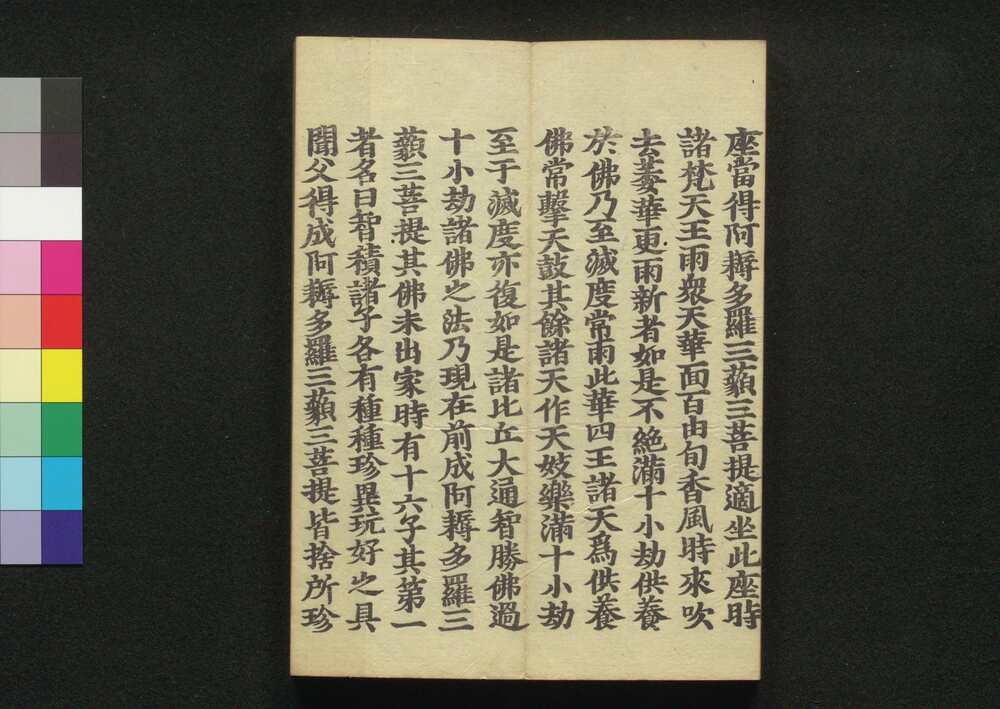 座當得阿耨多羅三藐三菩提適坐此座時
諸梵天王雨衆天華面百由旬香風時來吹
去萎華更雨新者如是不絶滿十小劫供養
於佛乃至滅度常雨此華四王諸天爲供養
佛常擊天鼓其餘諸天作天妓樂滿十小劫
至于滅度亦復如是諸比丘大通智勝佛過
十小劫諸佛之法乃現在前成阿耨多羅三
藐三菩提其佛未出家時有十六子其第一
者名曰智積諸子各有種種珍異玩好之具
聞父得成阿耨多羅三藐三菩提皆捨所珍